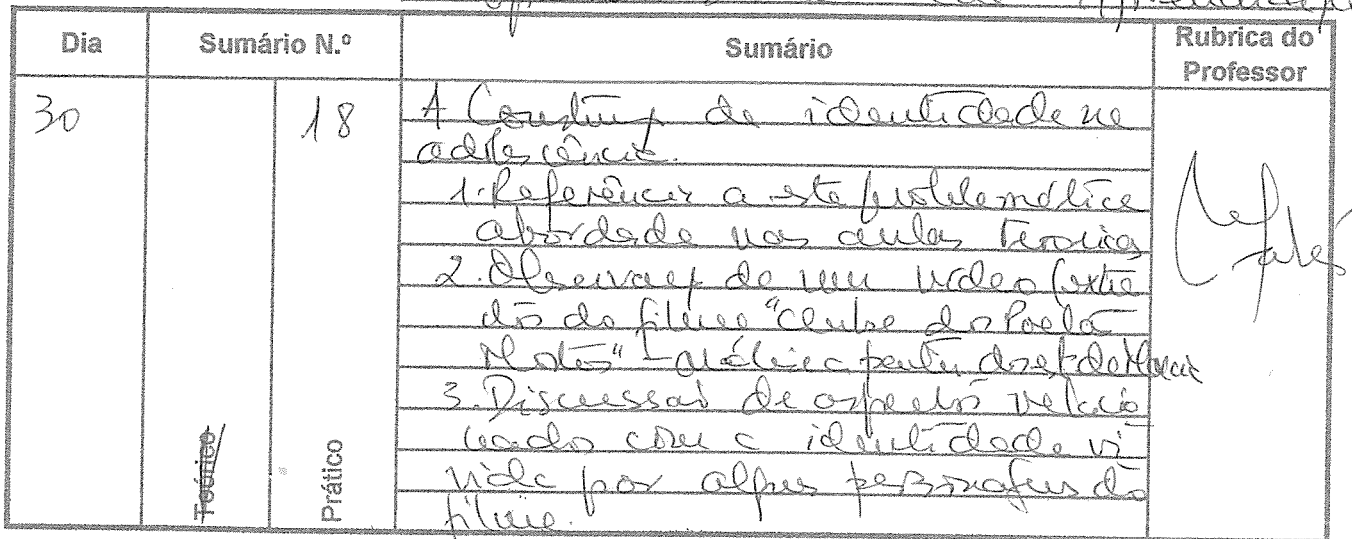 Dia Sumário N.º Sumário Rubrica do Professor
30 18
A Construção da identidade na
adolescência.
1. Referência a esta problemática
abordada nas aulas teóricas
2. Observação de um vídeo (extra
ído do filme "Clube dos Poetas
Mortos" - análise a partir dos
3. Discussão de aspectos relacio
nados com a identidade vi
vida por alguns personagens do
filme.
Teórico
Prático